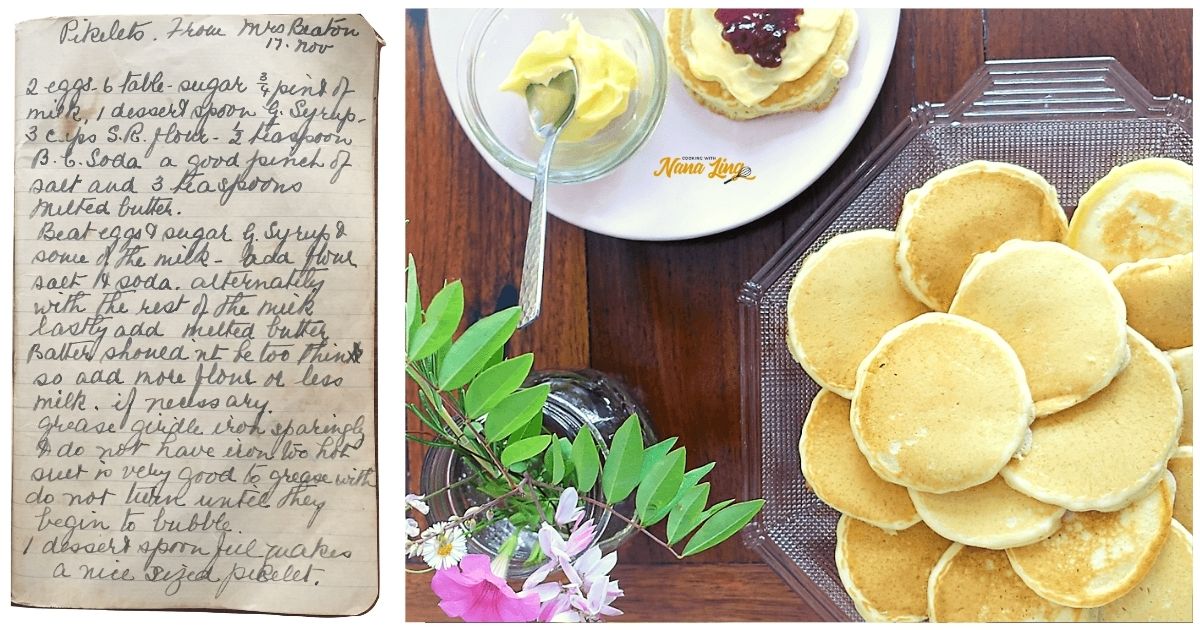 Pikelets. From Mrs Beaton
17. Nov
2 eggs. 6 table-sugar 3/4 pint of
milk, 1 dessert spoon G. Syrup-
3 cups S.R. flour - 1/2 teaspoon
B. C. Soda a good pinch of
salt and 3 teaspoons
melted butter.
Beat eggs & sugar G. Syrup &
some of the milk - add flour
salt & soda. alternately
with the rest of the milk
Lastly add melted butter
Batter should n't be too thin
so add more flour or less
milk. if necessary.
grease girdle iron sparingly
& do not have iron too hot
suet is very good to grease with
do not turn until they
begin to bubble.
1 dessert spoon full makes
a nice sized pikelet.
COOKING WITH
Nana Ling